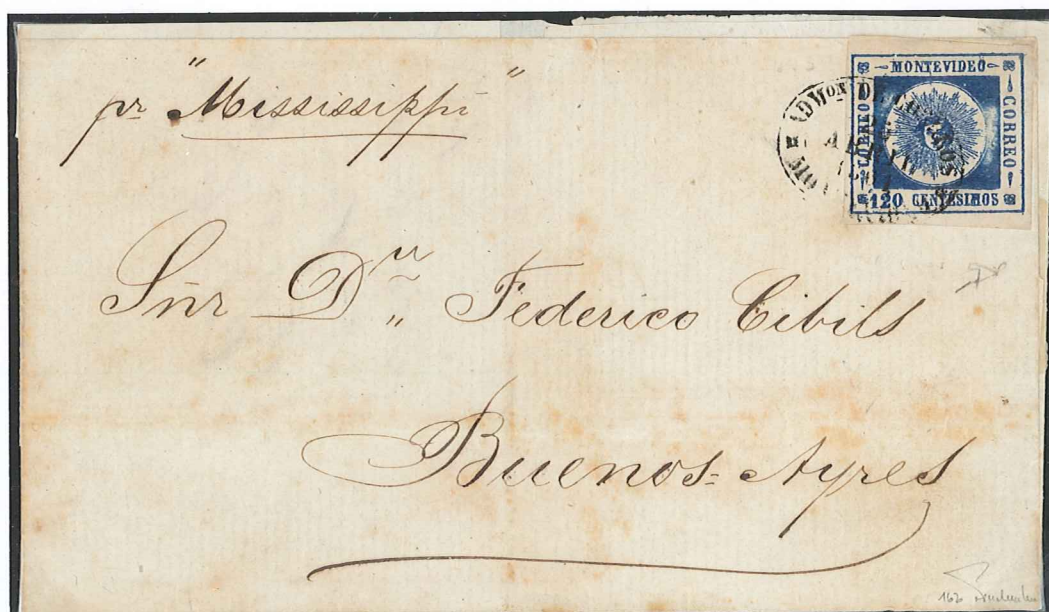 pr "Mississippi"
MONTEVIDEO
CORREO
CORREO
120 CENTESIMOS
ADMon DE
Sñr Dn Federico Cibils
Buenos=Ayres